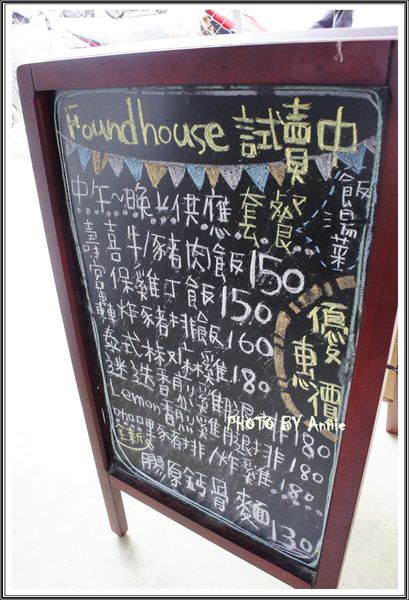 Foundhouse 試賣中
中午~晚上供應 套餐
飯湯菜
壽喜牛/豬肉飯 150
宮保雞丁飯 150
轟炸豬排飯 160
優惠價
泰式椒麻雞 180
迷迭香煎雞腿排 180
Lemon香煎雞腿排 180
口味豬排/炸雞 180
全新
膠原鈣骨麵 130
PHOTO BY Annie